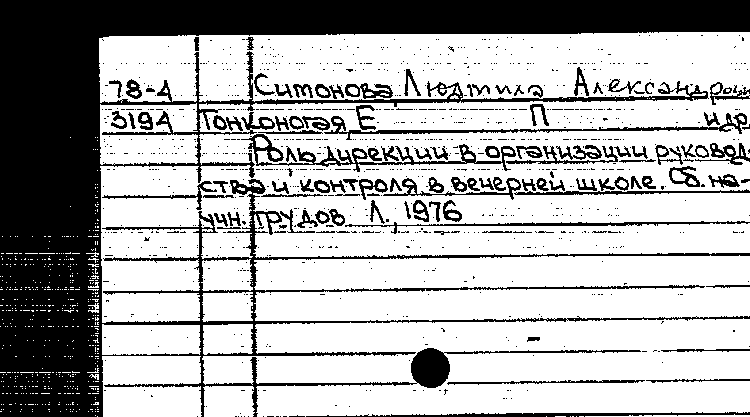 78-4 Ситонова Людмила Александровн
3194 Тонконогая, Е П и др
Роль дирекции в организации руковод-
ства и контроля в вечерней школе. Сб. на-
учн. трудов Л., 1976